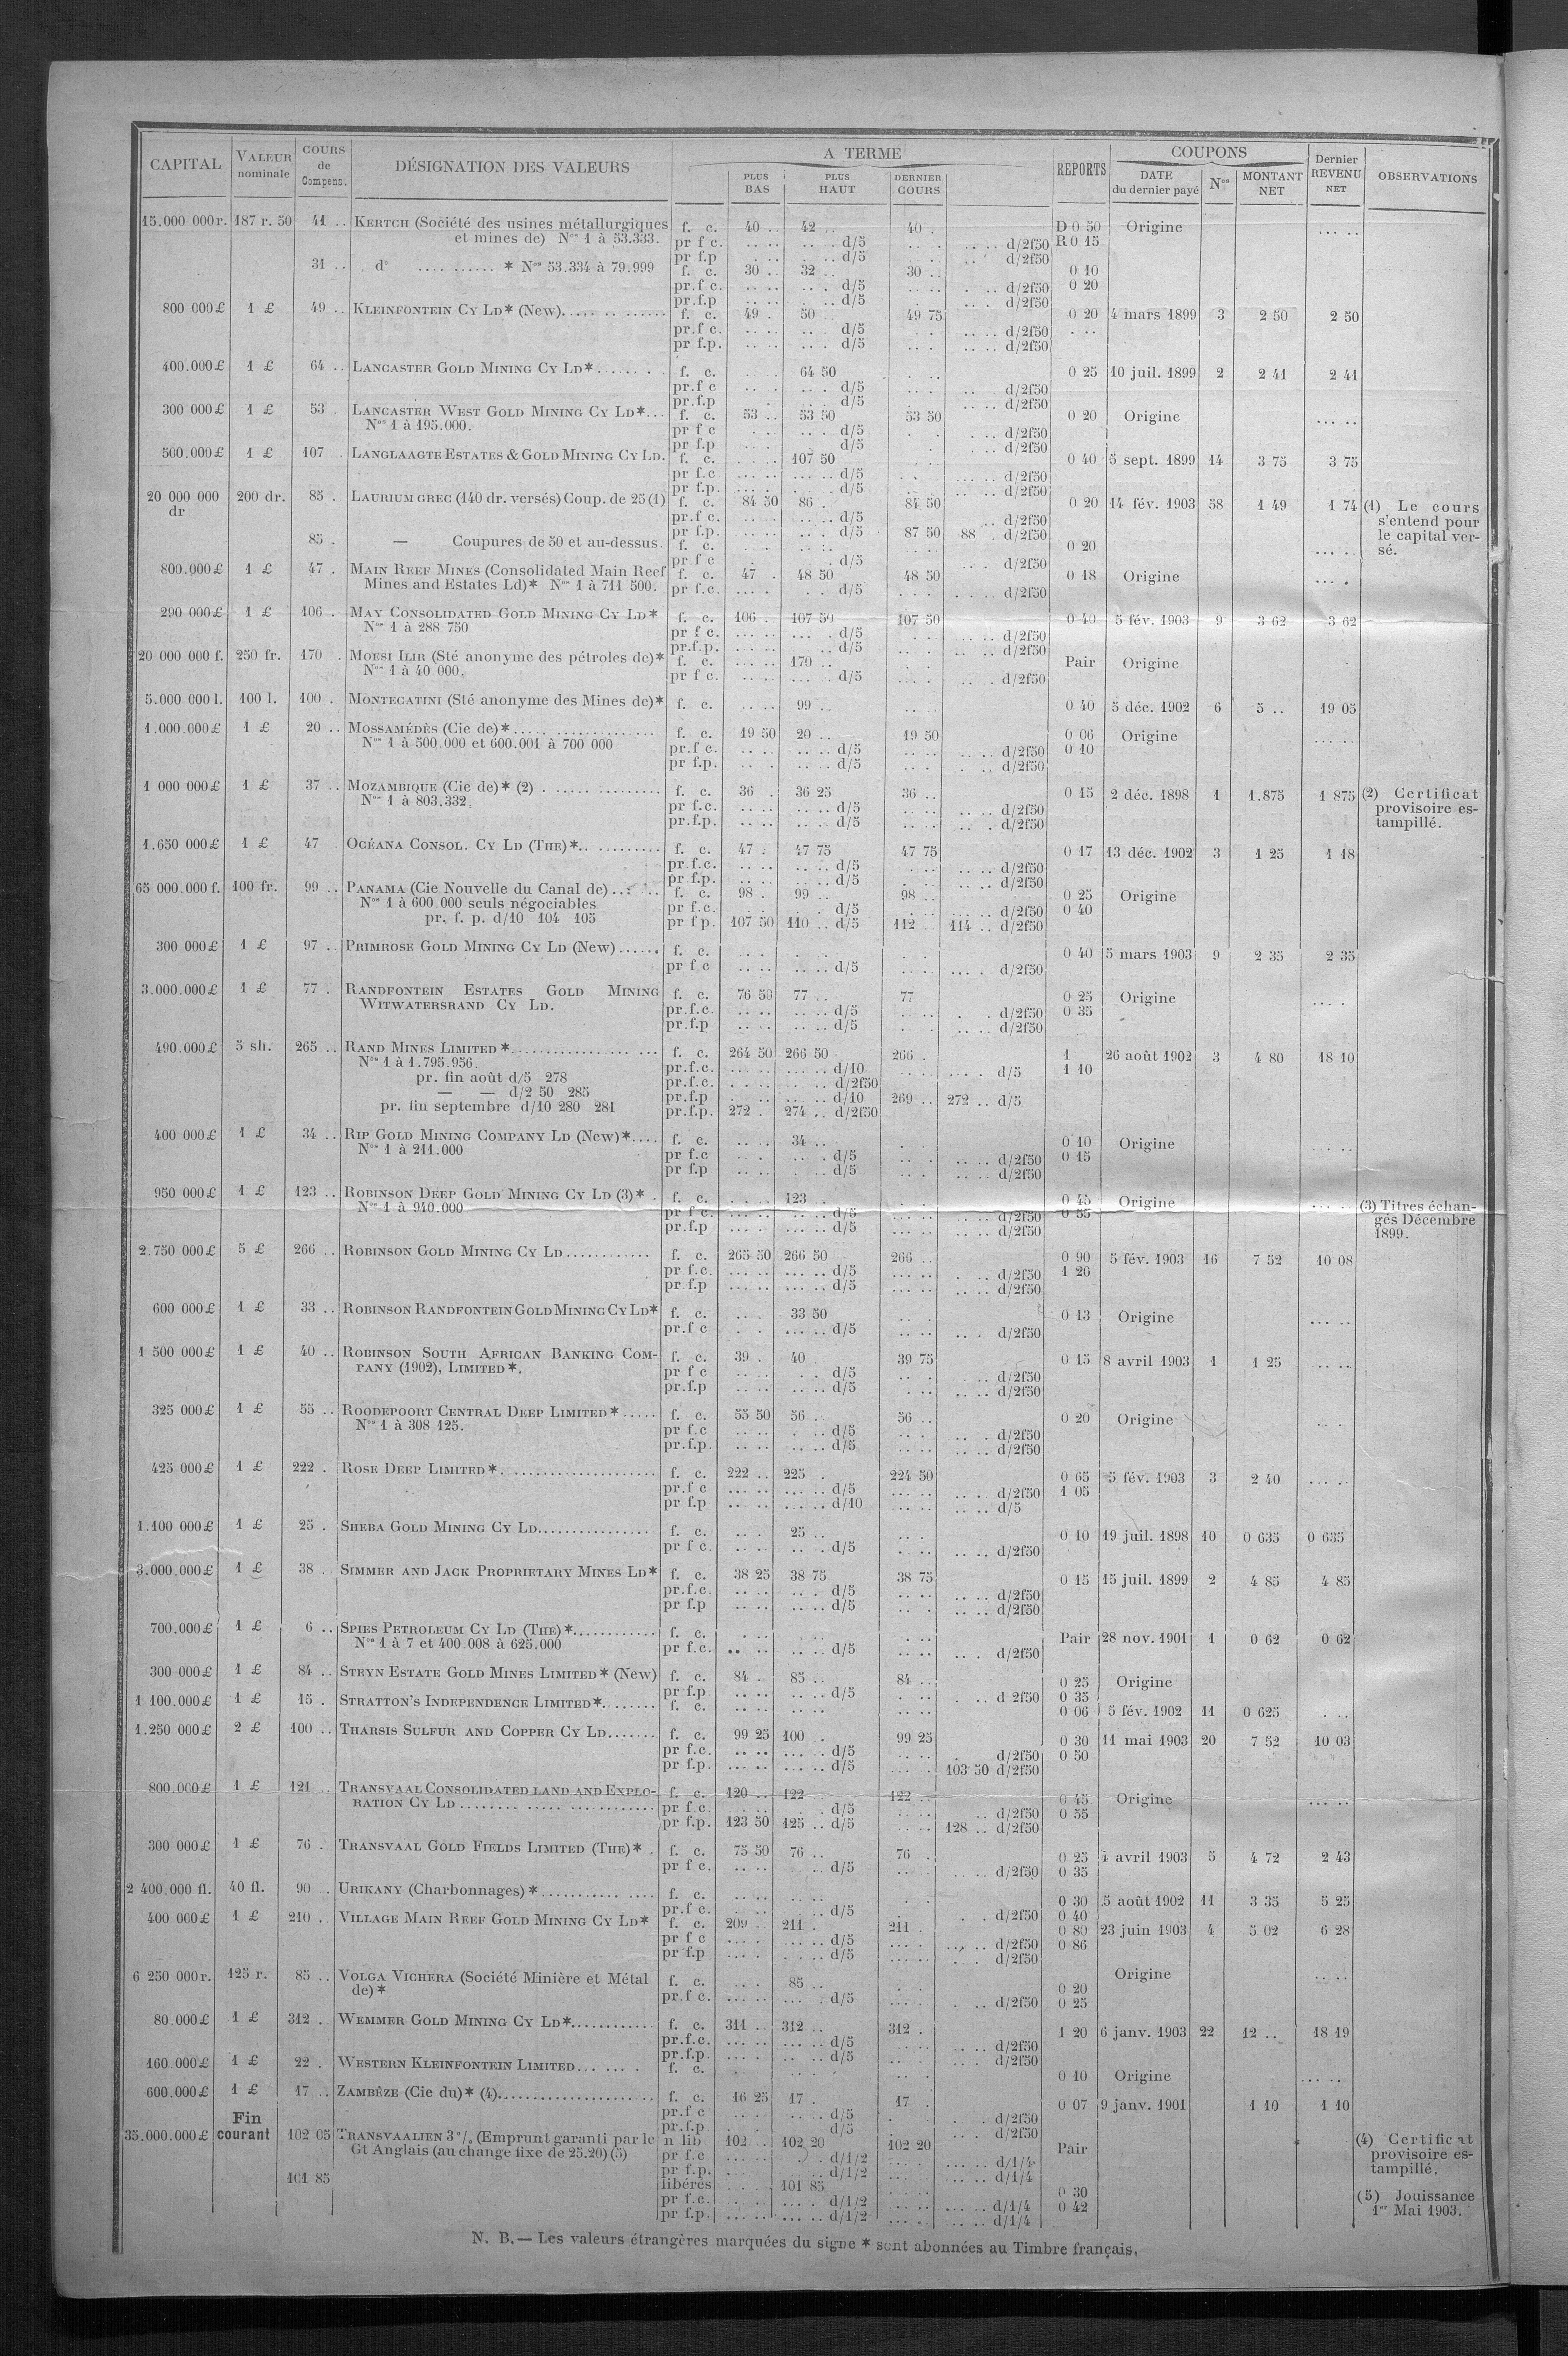 CAPITAL VALEUR nominale COURS de Compens. DÉSIGNATION DES VALEURS A TERME PLUS BAS PLUS HAUT DERNIER COURS REPORTS COUPONS DATE du dernier payé Nos MONTANT NET Dernier REVENU NET OBSERVATIONS
15.000 000r. 187 r. 50 41 .. KERTCH (Société des usines métallurgiques f. c. 40 .. 42 .. 40 . D 0 50 Origine ... ..
et mines de) Nos 1 à 53.333. pr f c. .. .. .. . d/5 .. .. d/2f50 R 0 15
pr f.p . .. . .. d/5 .. . d/2f50
31 .. d° .... ....... * Nos 53.334 à 79.999 f. c. 30 .. 32 .. 30 .. 0 10
pr.f.c. .. .. .. . d/5 .. .. . .. d/2f50 0 20
pr.f.p .. .. . .. d/5 .. . d/2f50
800 000£ 1 £ 49 .. KLEINFONTEIN CY LD* (New)..... .. ...... f. c. 49 . 50 .. 49 75 0 20 4 mars 1899 3 2 50 2 50
pr.f c. .. .. .. . d/5 .. .. d/2f50 . ..
pr f.p. .. .. .. . d/5 .. . .. .. d/2f50
400.000£ 1 £ 64 .. LANCASTER GOLD MINING CY LD*...... . f. c. .. . 64 50 . .. 0 25 10 juil. 1899 2 2 41 2 41
pr.f c .. . .. . d/5 .. . .. d/2f50
pr.f.p . . .. d/5 .. .. d/2f50
300 000£ 1 £ 53 . LANCASTER WEST GOLD MINING CY LD*... f. c. 53 .. 53 50 53 50 0 20 Origine ... ..
Nos 1 à 195.000. pr f c . . .. . d/5 . . . .. d/2f50
pr f.p .. . . d/5 . .. .. d/2f50
500.000£ 1 £ 107 . LANGLAAGTE ESTATES & GOLD MINING CY LD. f. c. . .. . 107 50 . .. 0 40 5 sept. 1899 14 3 75 3 75
pr f.c .. .. ... .. d/5 . . ... .. d/2f50
pr f.p. ... . . . d/5 .. .. .. d/2f50
20 000 000 dr 200 dr. 85 . LAURIUM GREC (140 dr. versés) Coup. de 25 (1) f. c. 84 50 86 . 84 50 0 20 14 fév. 1903 58 1 49 1 74 (1) Le cours
pr.f c. .. . .. .. d/5 .. d/2f50 s'entend pour
pr f.p. .. .. ... . d/5 87 50 88 . d/2f50 le capital ver-
85 . — Coupures de 50 et au-dessus. f. c. . .. .. .. . .. 0 20 ... .. sé.
pr f c . . d/5 .. . d/2f50
800.000£ 1 £ 47 . MAIN REEF MINES (Consolidated Main Reef f. c. 47 . 48 50 48 50 0 18 Origine ... .
Mines and Estates Ld)* Nos 1 à 711 500. pr f.c. ... . . . d/5 .. . . .. .. d/2f50
290 000£ 1 £ 106 . MAY CONSOLIDATED GOLD MINING CY LD* f. c. 106 . 107 50 107 50 0 40 5 fév. 1903 9 3 62 3 62
Nos 1 à 288 750 pr f c. ... .. ... . d/5 . . ... .. d/2f50
pr.f.p. ... .. .. d/5 .. .. .. d/2f50
20 000 000 f. 250 fr. 170 . MOESI ILIR (Sté anonyme des pétroles de)* f. c. .. .. 170 .. . . Pair Origine
Nos 1 à 40 000. pr f c. .. .. ... .. d/5 .. . .. . d/2f50
5.000 000 l. 100 l. 100 . MONTECATINI (Sté anonyme des Mines de)* f. c. .. .. 99 .. .. .. 0 40 5 déc. 1902 6 5 .. 19 05
1.000.000£ 1 £ 20 .. MOSSAMÉDÈS (Cie de)*..................... f. c. 19 50 20 .. 19 50 0 06 Origine ... ..
Nos 1 à 500.000 et 600.001 à 700 000 pr.f c. .. . .. .. d/5 .. .. .. .. d/2f50 0 10
pr f.p. .. . .. .. d/5 .. . . .. d/2f50
1 000 000£ 1 £ 37 .. MOZAMBIQUE (Cie de)* (2) . ..... ........... f. c. 36 . 36 25 36 .. 0 15 2 déc. 1898 1 1.875 1 875 (2) Certificat
Nos 1 à 803.332. pr f.c. .. .. .. .. d/5 .. .. .. .. d/2f50 provisoire es-
pr.f.p. .. .. .. .. d/5 .. .. .. . d/2f50 tampillé.
1.650 000£ 1 £ 47 OCÉANA CONSOL. CY LD (THE)*.. .......... f. c. 47 . 47 75 47 75 0 17 13 déc. 1902 3 1 25 1 18
pr.f.c. .. .. .. .. d/5 . .. .. .. d/2f50
pr f.p. .. .. .. .. d/5 . .. .. .. d/2f50
65 000.000 f. 100 fr. 99 .. PANAMA (Cie Nouvelle du Canal de) ..... .. f. c. 98 . 99 .. 98 .. 0 25 Origine
Nos 1 à 600.000 seuls négociables pr f.c. . . . . d/5 . . ... .. d/2f50 0 40
pr. f. p. d/10 104 105 pr f p. 107 50 110 .. d/5 112 .. 114 .. d/2f50
300 000£ 1 £ 97 .. PRIMROSE GOLD MINING CY LD (New)...... f. c. .. . . .. . . 0 40 5 mars 1903 9 2 35 2 35
pr f c .. .. .. .. d/5 .. . ... . d/2f50
3.000.000£ 1 £ 77 . RANDFONTEIN ESTATES GOLD MINING f. c. 76 50 77 .. 77 0 25 Origine ... .
WITWATERSRAND CY LD. pr.f.c. .. .. .. .. d/5 .. .. . . d/2f50 0 35
pr.f.p .. .. .. .. d/5 .. . .. .. d/2f50
490.000£ 5 sh. 265 .. RAND MINES LIMITED*................ .. ... f. c. 264 50 266 50 266 . 1 26 août 1902 3 4 80 18 10
Nos 1 à 1.795.956. pr.f.c. ... .. ... .. d/10 .. .. ... . d/5 1 10
pr. fin août d/5 278 pr.f.c. . . .. .. .. .. d/2f50
— — d/2 50 285 pr.f.p . .. .. .. .. d/10 269 .. 272 .. d/5
pr. fin septembre d/10 280 281 pr.f.p. 272 . 274 .. d/2f50
400 000£ 1 £ 34 .. RIP GOLD MINING COMPANY LD (New)*.... f. c. .. .. 34 .. . . 0 10 Origine ... ..
Nos 1 à 211.000 pr f.c .. . .. . d/5 .. . .. .. d/2f50 0 15
pr f.p .. .. . .. d/5 .. .. .. d/2f50
950 000£ 1 £ 123 .. ROBINSON DEEP GOLD MINING CY LD (3)* . f. c. . .. . 123 .. . . 0 45 Origine ... . (3) Titres échan-
Nos 1 à 940.000 pr f c. ... .. ... .. d/5 .. .. .. .. d/2f50 0 55 gés Décembre
pr.f.p ... .. ... .. d/5 .. .. .. .. d/2f50 1899.
2.750 000£ 5 £ 266 .. ROBINSON GOLD MINING CY LD............ f. c. 265 50 266 50 266 .. 0 90 5 fév. 1903 16 7 52 10 08
pr f.c. ... .. ... .. d/5 ... .. . .. d/2f50 1 20
pr f.p ... .. ... .. d/5 ... .. .. .. d/2f50
600.000£ 1 £ 33 .. ROBINSON RANDFONTEIN GOLD MINING CY LD* f. c. .. . 33 50 .. . 0 13 Origine ... ..
pr.f c . . ... .. d/5 .. .. .. . d/2f50
1 500 000£ 1 £ 40 .. ROBINSON SOUTH AFRICAN BANKING COM- f. c. 39 . 40 39 75 0 15 8 avril 1903 1 1 25 .. ..
PANY (1902), LIMITED*. pr f c .. .. . . d/5 .. . .. d/2f50
pr.f.p .. .. .. .. d/5 . .. .. .. d/2f50
325 000£ 1 £ 55 .. ROODEPOORT CENTRAL DEEP LIMITED*..... f. c. 55 50 56 . 56 .. 0 20 Origine .. .
Nos 1 à 308 125. pr f.c .. .. . .. d/5 .. . .. . d/2f50
pr.f.p. .. .. .. .. d/5 .. .. .. .. d/2f50
425 000£ 1 £ 222 . ROSE DEEP LIMITED*. ..................... f. c. 222 .. 225 . 224 50 0 65 5 fév. 1903 3 2 40 ... ..
pr.f c ... .. ... .. d/5 ... .. .. . d/2f50 1 05
pr f.p .. .. ... .. d/10 ... .. .. .. d/5
1.100 000£ 1 £ 25 . SHEBA GOLD MINING CY LD................. f. c. .. . 25 .. .. . 0 10 19 juil. 1898 10 0 635 0 635
pr f c. .. .. .. . d/5 .. . .. .. d/2f50
3.000.000£ 1 £ 38 .. SIMMER AND JACK PROPRIETARY MINES LD* f. c. 38 25 38 75 38 75 0 15 15 juil. 1899 2 4 85 4 85
pr.f.c. .. .. .. . d/5 .. . .. .. d/2f50
pr f.p .. .. .. .. d/5 .. . .. .. d/2f50
700.000£ 1 £ 6 .. SPIES PETROLEUM CY LD (THE)*............ f. c. . .. .. .. . .. Pair 28 nov. 1901 1 0 62 0 62
Nos 1 à 7 et 400.008 à 625.000 pr f.c. .. .. .. .. d/5 .. .. .. . d/2f50
300 000£ 1 £ 84 .. STEYN ESTATE GOLD MINES LIMITED* (New) f. c. 84 . 85 .. 84 .. 0 25 Origine
pr f.p .. .. .. .. d/5 . .. . .. d 2f50 0 35
1 100.000£ 1 £ 15 . STRATTON'S INDEPENDENCE LIMITED*........ f. c. .. .. .. .. .. .. 0 06 5 fév. 1902 11 0 625 . ..
1.250 000£ 2 £ 100 .. THARSIS SULFUR AND COPPER CY LD....... f. c. 99 25 100 . 99 25 0 30 11 mai 1903 20 7 52 10 03
pr f.c. .. .. ... .. d/5 .. .. . d/2f50 0 50
pr f.p. ... .. ... .. d/5 .. . 103 50 d/2f50
800.000£ 1 £ 121 .. TRANSVAAL CONSOLIDATED LAND AND EXPLO- f. c. 120 .. 122 122 .. 0 45 Origine ... ..
RATION CY LD........ ..... ............ pr f.c. . .. . . d/5 .. .. .. d/2f50 0 55
pr f.p. 123 50 125 .. d/5 .. .. 128 .. d/2f50
300 000£ 1 £ 76 . TRANSVAAL GOLD FIELDS LIMITED (THE)* . f. c. 75 50 76 .. 76 . 0 25 4 avril 1903 5 4 72 2 43
pr f c. .. .. .. .. d/5 .. .. .. .. d/2f50 0 35
2 400.000 fl. 40 fl. 90 .. URIKANY (Charbonnages)*........... .... f. c. .. .. .. .. . 0 30 5 août 1902 11 3 35 5 25
pr.f c. .. . .. d/5 . . . d/2f50 0 40
400 000£ 1 £ 210 .. VILLAGE MAIN REEF GOLD MINING CY LD* f. c. 209 .. 211 . 211 . 0 80 23 juin 1903 4 5 02 6 28
pr f c ... . ... .. d/5 ... . ... .. d/2f50 0 86
pr f.p ... . . .. d/5 ... .. . . d/2f50
6 250 000r. 125 r. 85 .. VOLGA VICHERA (Société Minière et Métal f. c. .. . 85 .. . . Origine .. ..
de)* pr.f c. ... .. ... . d/5 ... . . .. d/2f50 0 20
0 25
80.000£ 1 £ 312 . WEMMER GOLD MINING CY LD*............ f. c. 311 .. 312 .. 312 . 1 20 6 janv. 1903 22 12 .. 18 19
pr.f.c. ... .. ... .. d/5 ... .. .. .. d/2f50
pr.f.p. ... . .. .. d/5 .. .. .. . d/2f50
160.000£ 1 £ 22 . WESTERN KLEINFONTEIN LIMITED... .. . f. c. . .. .. . 0 10 Origine ... ..
600.000£ 1 £ 17 .. ZAMBÈZE (Cie du)* (4)...................... f. c. 16 25 17 . 17 . 0 07 9 janv. 1901 1 10 1 10
pr.f c .. . .. .. d/5 . . .. d/2f50
pr.f.p . . d/5 . .. . d/2f50
35.000.000£ Fin courant 102 05 TRANSVAALIEN 3 % (Emprunt garanti par le n lib 102 .. 102 20 102 20 Pair (4) Certificat
Gt Anglais (au change fixe de 25.20) (5) pr f.c ... .. . . d/1/2 ... . ... .. d/1/4 provisoire es-
pr f.p. ... .. .. d/1/2 ... .. ... .. d/1/4 tampillé.
101 85 libérés . . . 101 85 .. .. 0 30
pr f.c. ... .. ... . d/1/2 ... .. ... .. d/1/4 0 42 (5) Jouissance
pr f.p. ... .. ... .. d/1/2 ... .. .. .. d/1/4 1er Mai 1903.
N. B. — Les valeurs étrangères marquées du signe * sont abonnées au Timbre français.